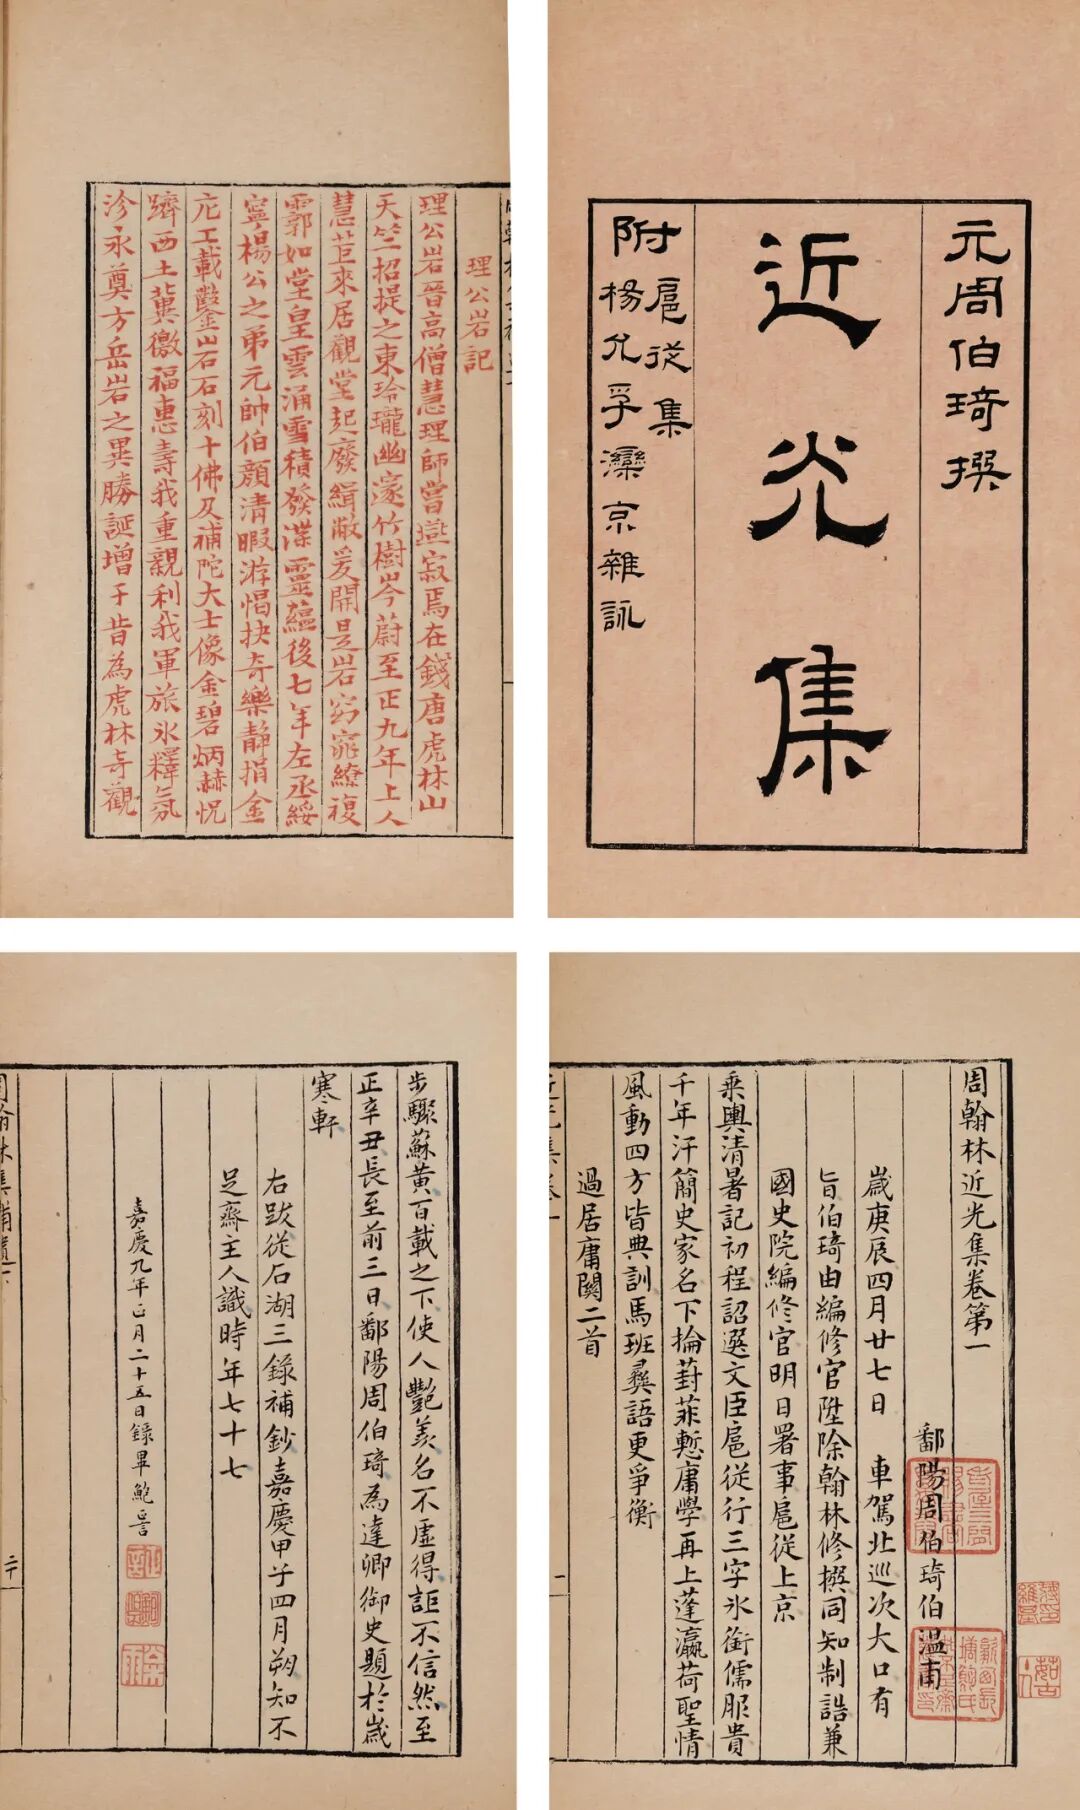 元周伯琦撰
近光集
扈從集
附楊允孚灤京雜詠
理公岩記
理公岩晉高僧慧理師嘗燕寂焉在錢唐虎林山
天竺招提之東玲瓏幽邃竹樹岑蔚至正九年上人
慧苣來居觀堂起廢緝敝爰開是岩窈窕繚複
霩如堂皇雲涌雪積發渫靈蘊後七年左丞綏
寧楊公之弟元帥伯顏清暇游惕抉奇樂靜捐金
庀工載鑿山石石刻十佛及補陀大士像金碧炳赫怳
躋西土冀徼福惠壽我重親利我軍旅氷釋氛
沴永奠方岳岩之異勝誕增于昔為虎林奇觀
周翰林近光集卷第一
鄱陽周伯琦伯溫甫
歲庚辰四月廿七日 車駕北巡次大口有
旨伯琦由編修官陞除翰林修撰同知制誥兼
國史院編修官明日署事扈從上京
乘輿清暑記初程詔選文臣扈從行三字氷銜儒服貴
千年汗簡史家名下掄葑菲慙庸學再上蓬瀛荷聖情
風動四方皆典訓馬班彞語更爭衡
過居庸關二首
近光集卷一
一
步驟蘇黃百載之下使人艷羨名不虛得詎不信然至
正辛丑長至前三日鄱陽周伯琦為達卿御史題於歲
寒軒
右跋從石湖三錄補鈔嘉慶甲子四月朔知不
足齋主人識時年七十七
嘉慶九年正月二十五日錄畢鮑正言
周翰林集補遺下
二十一